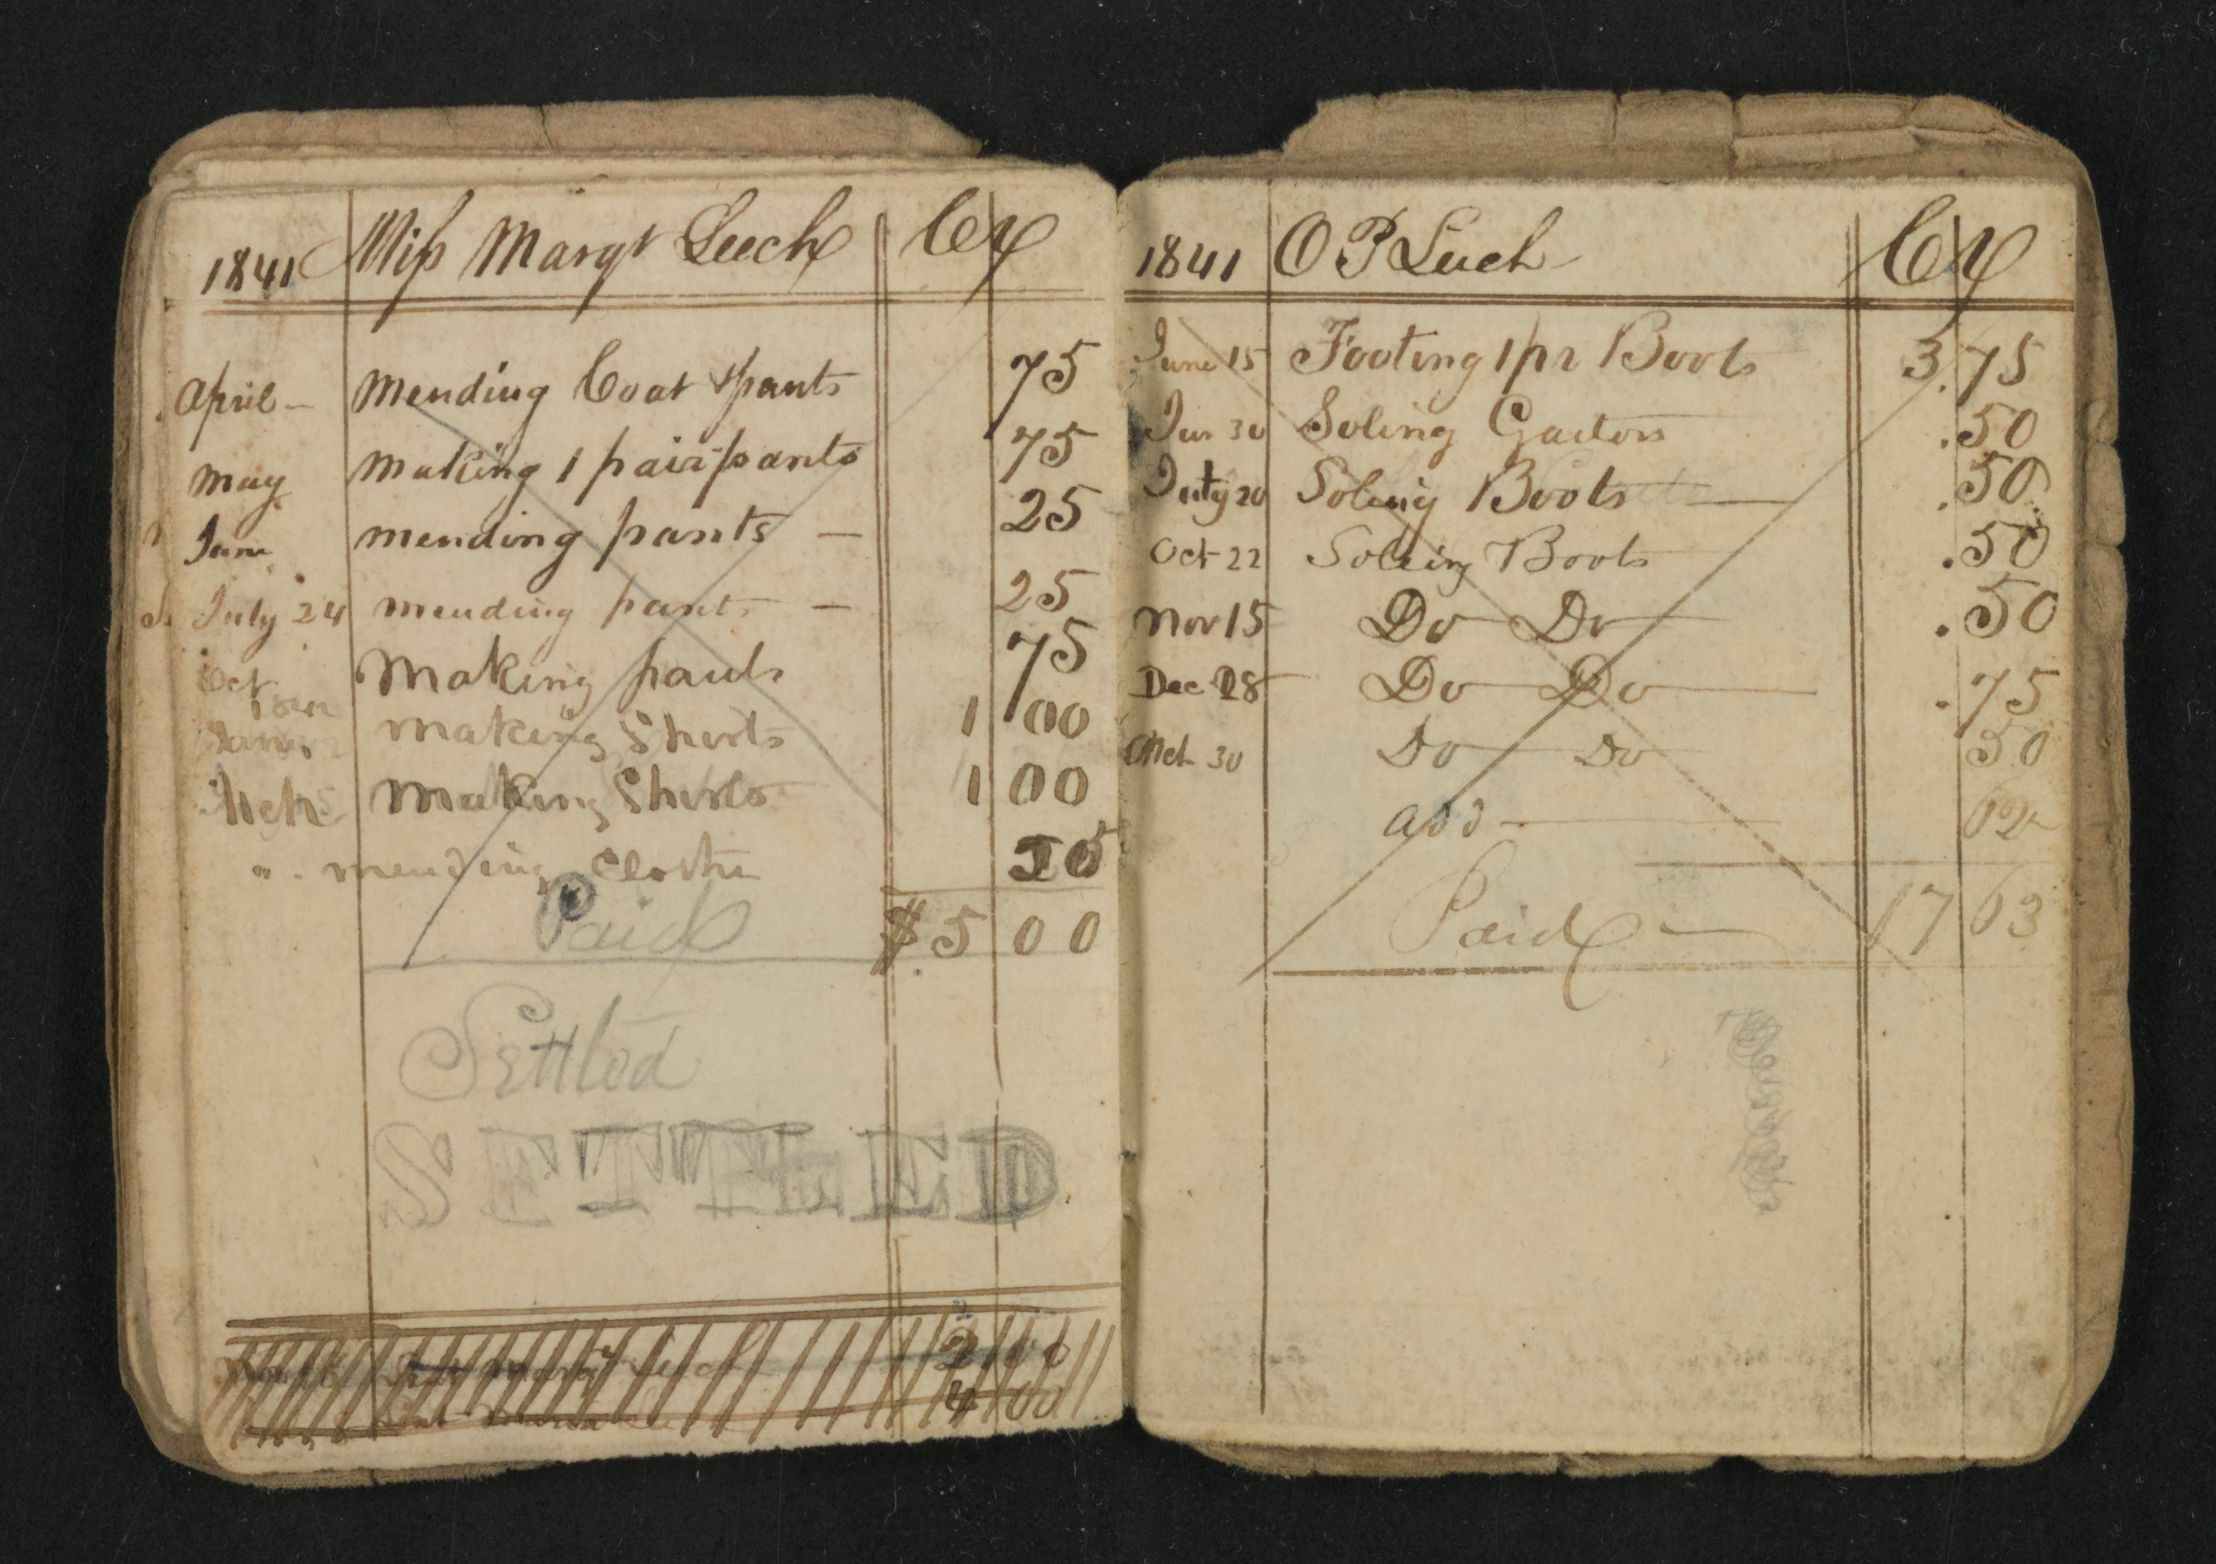 1841 Miss Margt Leech Cr
April - Mending Coat & pants 75
May Making 1 pair pants 75
June mending pants - 25
July 24 mending pants - 25
Oct Making pants 75
making Shirts 1 00
Mch Making Shirts 1 00
" . mending Clothes
Paid $ 5 00
Settled
SETTLED
2 00
4 00
1841 O P Leech Cr
June 15 Footing 1 pr Boots 3.75
Jun 30 Soling Gaitors .50
July 20 Soling Boots .50
Oct 22 Soling Boots .50
Nov 15 Do Do .50
Dec 28 Do Do .75
Mch 30 Do Do 50
add 62
Paid 17 63